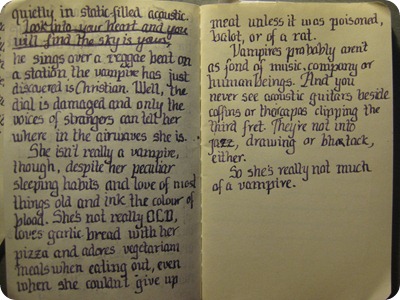 quietly in static-filled acoustic.
Look into your heart and you
will find the sky is yours,
he sings over a reggae beat on
a station the vampire has just
discovered is Christian. Well, the
dial is damaged and only the
voices of strangers can tell her
where in the airwaves she is.
She isn't really a vampire,
though, despite her peculiar
sleeping habits and love of most
things old and ink the colour of
blood. She's not really O.C.D,
loves garlic bread with her
pizza and adores vegetarian
meals when eating out, even
when she couldn't give up
meat unless it was poisoned,
balot, or of a rat.
Vampires probably aren't
as fond of music, company or
human beings. And you
never see acoustic guitars beside
coffins or clipping the
third fret. They're not into
jazz, drawing or
either.
So she's really not much
of a vampire.